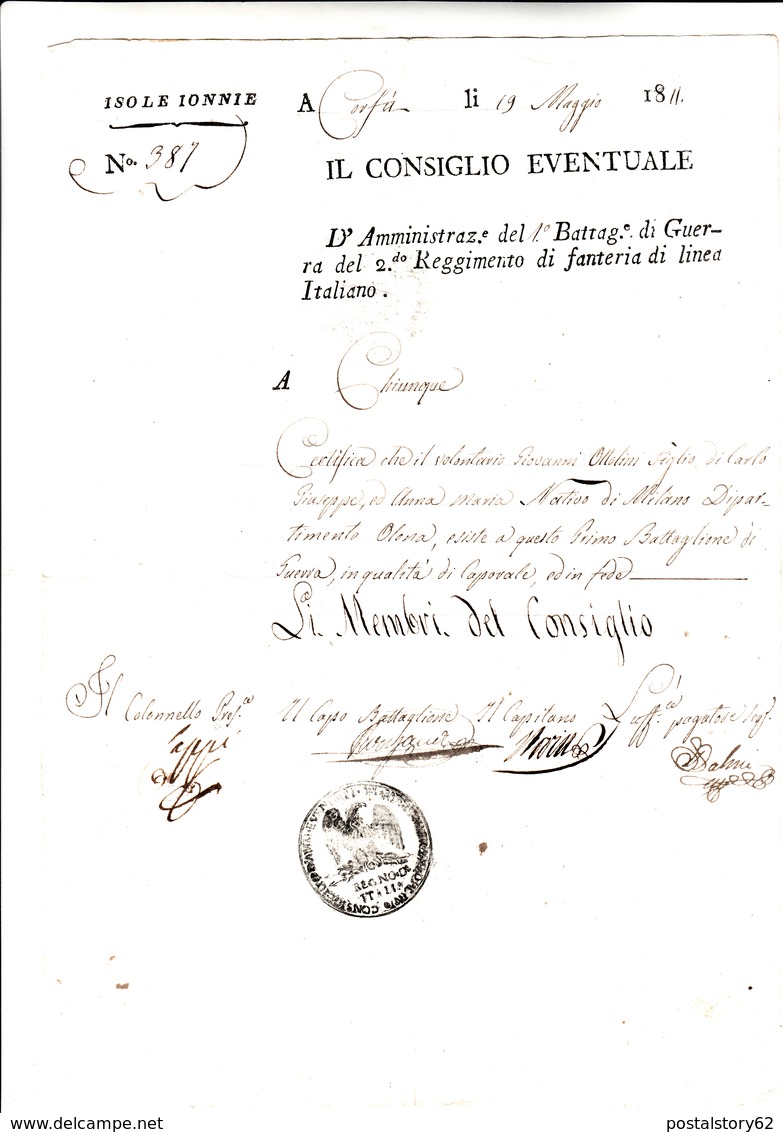 ISOLE IONNIE
A Corfù li 19 Maggio 1811.
No. 387
IL CONSIGLIO EVENTUALE
D' Amministraz.e del 1.o Battag.e di Guer-
ra del 2.do Reggimento di fanteria di linea
Italiano.
A Chiunque
Certifica che il volontario Giovanni Ottolini Figlio di Carlo
Giuseppe, ed Anna Maria Nativo di Milano Dipar-
timento Olona, esiste a questo Primo Battaglione di
Guerra, in qualità di Caporale, ed in fede
Li Membri del Consiglio
Il Colonnello Pres.e Il Capo Battaglione Il Capitano Uff.e pagatore Seg.
REGNO D'
ITALIA
delcampe.net
postalstory62